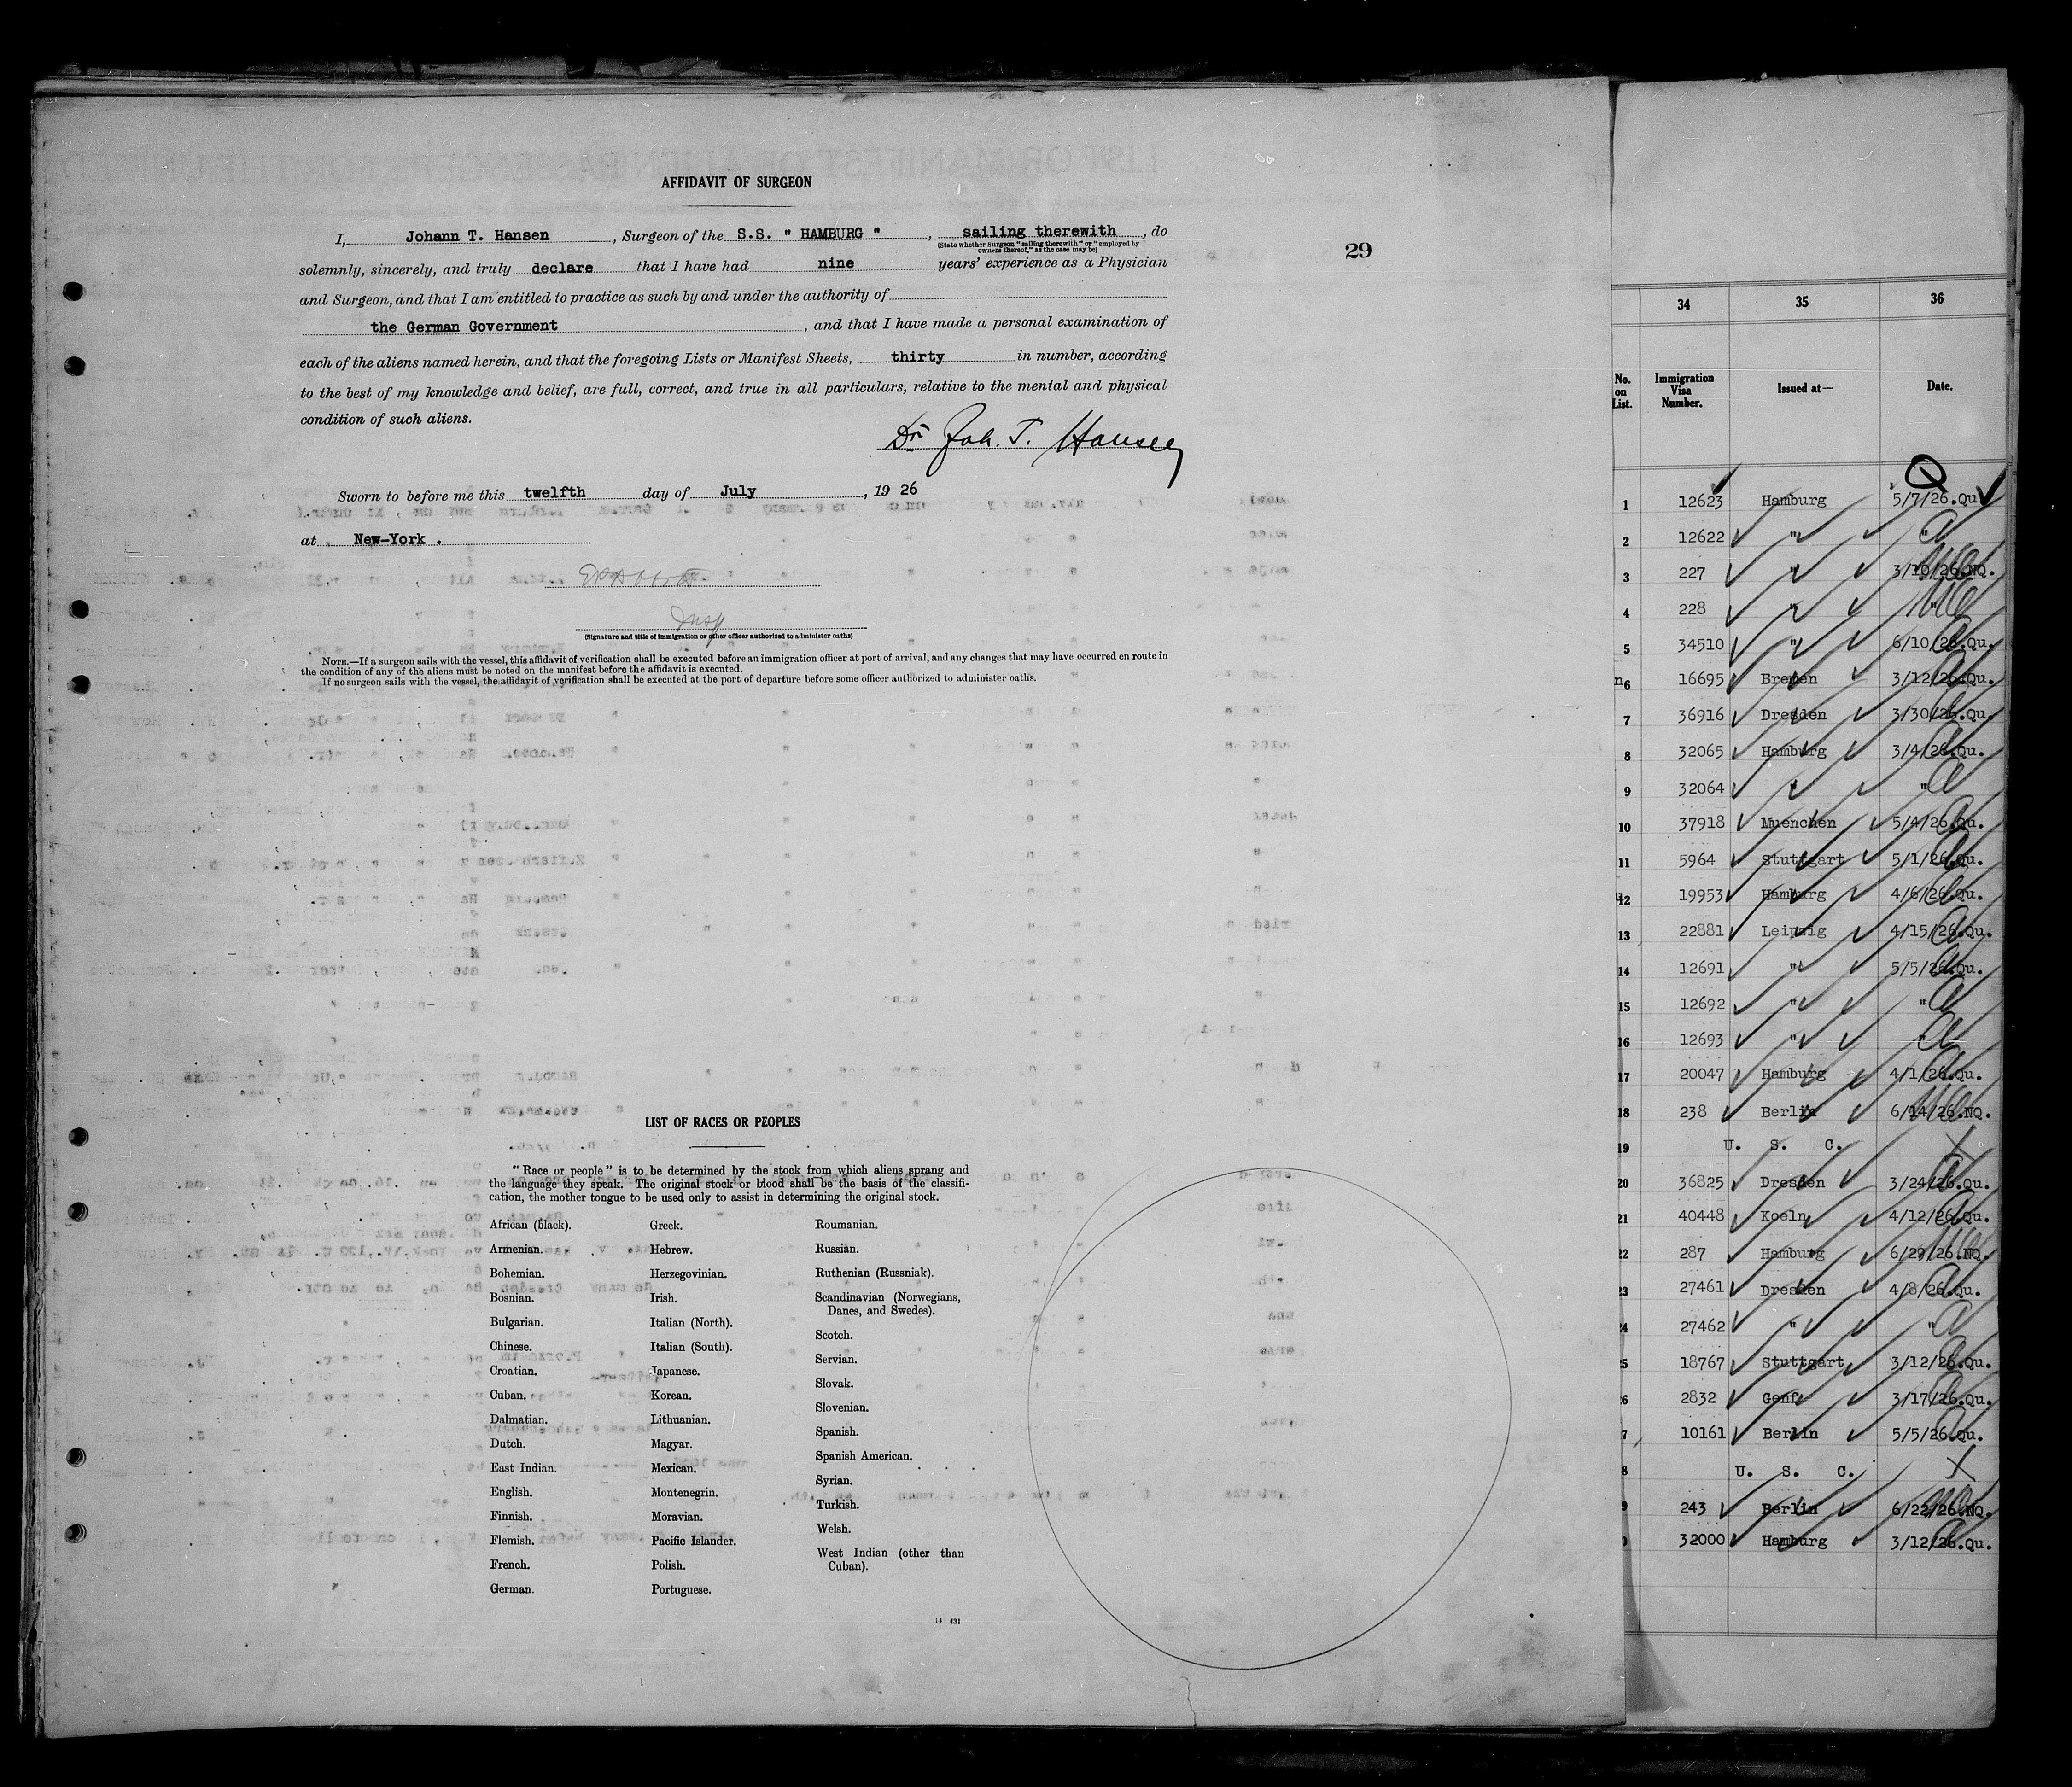 AFFIDAVIT OF SURGEON
I, Johann T. Hansen, Surgeon of the S.S. " HAMBURG ", sailing therewith, do
(State whether Surgeon "sailing therewith" or "employed by
owners thereof," as the case may be)
solemnly, sincerely, and truly declare that I have had nine years' experience as a Physician
and Surgeon, and that I am entitled to practice as such by and under the authority of
the German Government, and that I have made a personal examination of
each of the aliens named herein, and that the foregoing Lists or Manifest Sheets, thirty in number, according
to the best of my knowledge and belief, are full, correct, and true in all particulars, relative to the mental and physical
condition of such aliens.
Dr Joh. T. Hansen
Sworn to before me this twelfth day of July, 19 26
at New-York .
Insp
(Signature and title of immigration or other officer authorized to administer oaths)
NOTE.—If a surgeon sails with the vessel, this affidavit of verification shall be executed before an immigration officer at port of arrival, and any changes that may have occurred en route in
the condition of any of the aliens must be noted on the manifest before the affidavit is executed.
If no surgeon sails with the vessel, the affidavit of verification shall be executed at the port of departure before some officer authorized to administer oaths.
29
LIST OF RACES OR PEOPLES
"Race or people" is to be determined by the stock from which aliens sprang and
the language they speak. The original stock or blood shall be the basis of the classifi-
cation, the mother tongue to be used only to assist in determining the original stock.
African (black).
Armenian.
Bohemian.
Bosnian.
Bulgarian.
Chinese.
Croatian.
Cuban.
Dalmatian.
Dutch.
East Indian.
English.
Finnish.
Flemish.
French.
German.
Greek.
Hebrew.
Herzegovinian.
Irish.
Italian (North).
Italian (South).
Japanese.
Korean.
Lithuanian.
Magyar.
Mexican.
Montenegrin.
Moravian.
Pacific Islander.
Polish.
Portuguese.
Roumanian.
Russian.
Ruthenian (Russniak).
Scandinavian (Norwegians,
Danes, and Swedes).
Scotch.
Servian.
Slovak.
Slovenian.
Spanish.
Spanish American.
Syrian.
Turkish.
Welsh.
West Indian (other than
Cuban).
14 431
34 35 36
No. on List. Immigration Visa Number. Issued at— Date.
Q
1 12623 Hamburg 5/7/26.Qu.
2 12622 " "
3 227 " 3/10/26.NQ.
4 228 " "
5 34510 " 6/10/26.Qu.
n6 16695 Bremen 3/12/26.Qu.
7 36916 Dresden 3/30/26.Qu.
8 32065 Hamburg 3/4/26.Qu.
9 32064 " "
10 37918 Muenchen 5/4/26.Qu.
11 5964 Stuttgart 5/1/26.Qu.
12 19953 Hamburg 4/6/26.Qu.
13 22881 Leipzig 4/15/26.Qu.
14 12691 " 5/5/26.Qu.
15 12692 " "
16 12693 " "
17 20047 Hamburg 4/1/26.Qu.
18 238 Berlin 6/14/26.NQ.
19 U. S. C.
20 36825 Dresden 3/24/26.Qu.
21 40448 Koeln 4/12/26.Qu.
22 287 Hamburg 6/29/26.NQ.
23 27461 Dresden 4/8/26.Qu.
4 27462 " "
5 18767 Stuttgart 3/12/26.Qu.
6 2832 Genf 3/17/26.Qu.
7 10161 Berlin 5/5/26.Qu.
8 U. S. C.
9 243 Berlin 6/22/26.NQ.
0 32000 Hamburg 3/12/26.Qu.